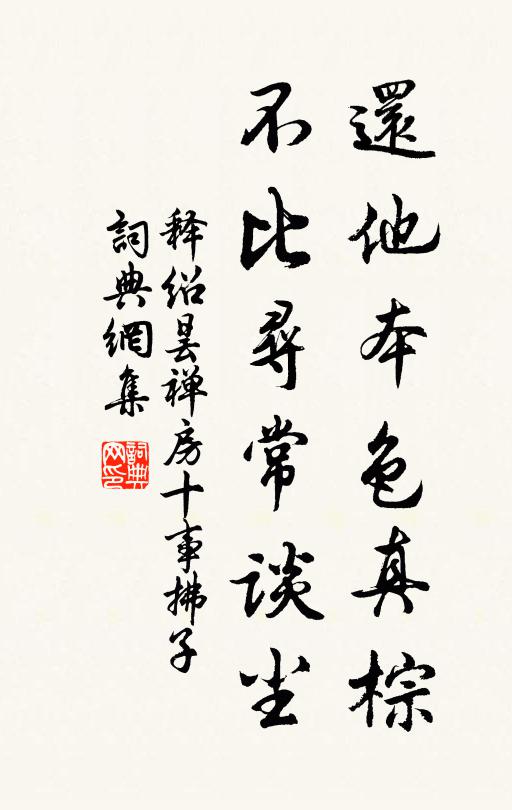 還他本色真棕
不比尋常談尘
释绍昙禅房十事拂子
詞典網集
詞典网印